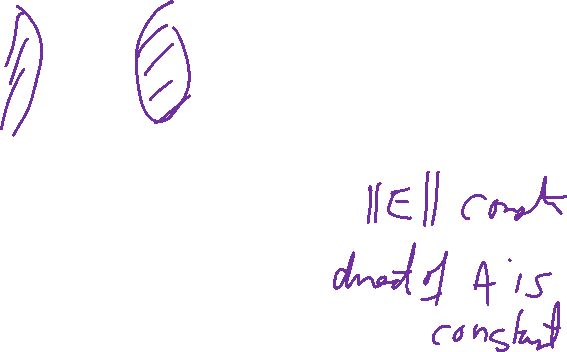 ||E|| const
direct of A is
constant